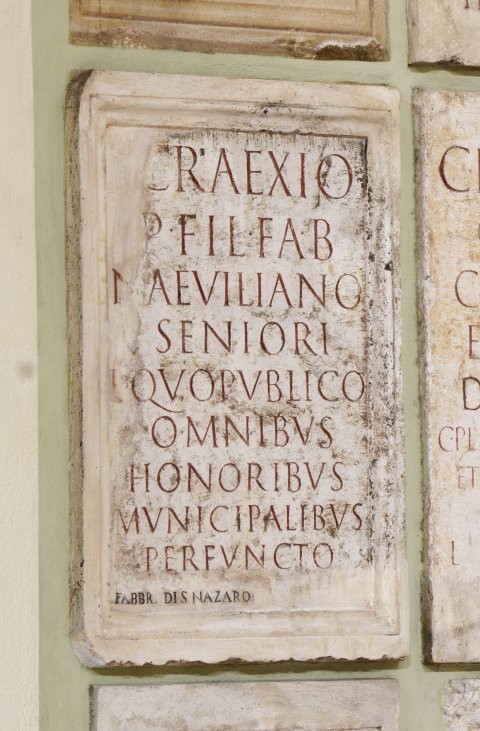 CRAEXIO
P FIL FAB
NAEVILIANO
SENIORI
EQVO PVBLICO
OMNIBVS
HONORIBVS
MVNICIPALIBVS
PERFVNCTO
FABBR. DI S NAZARO